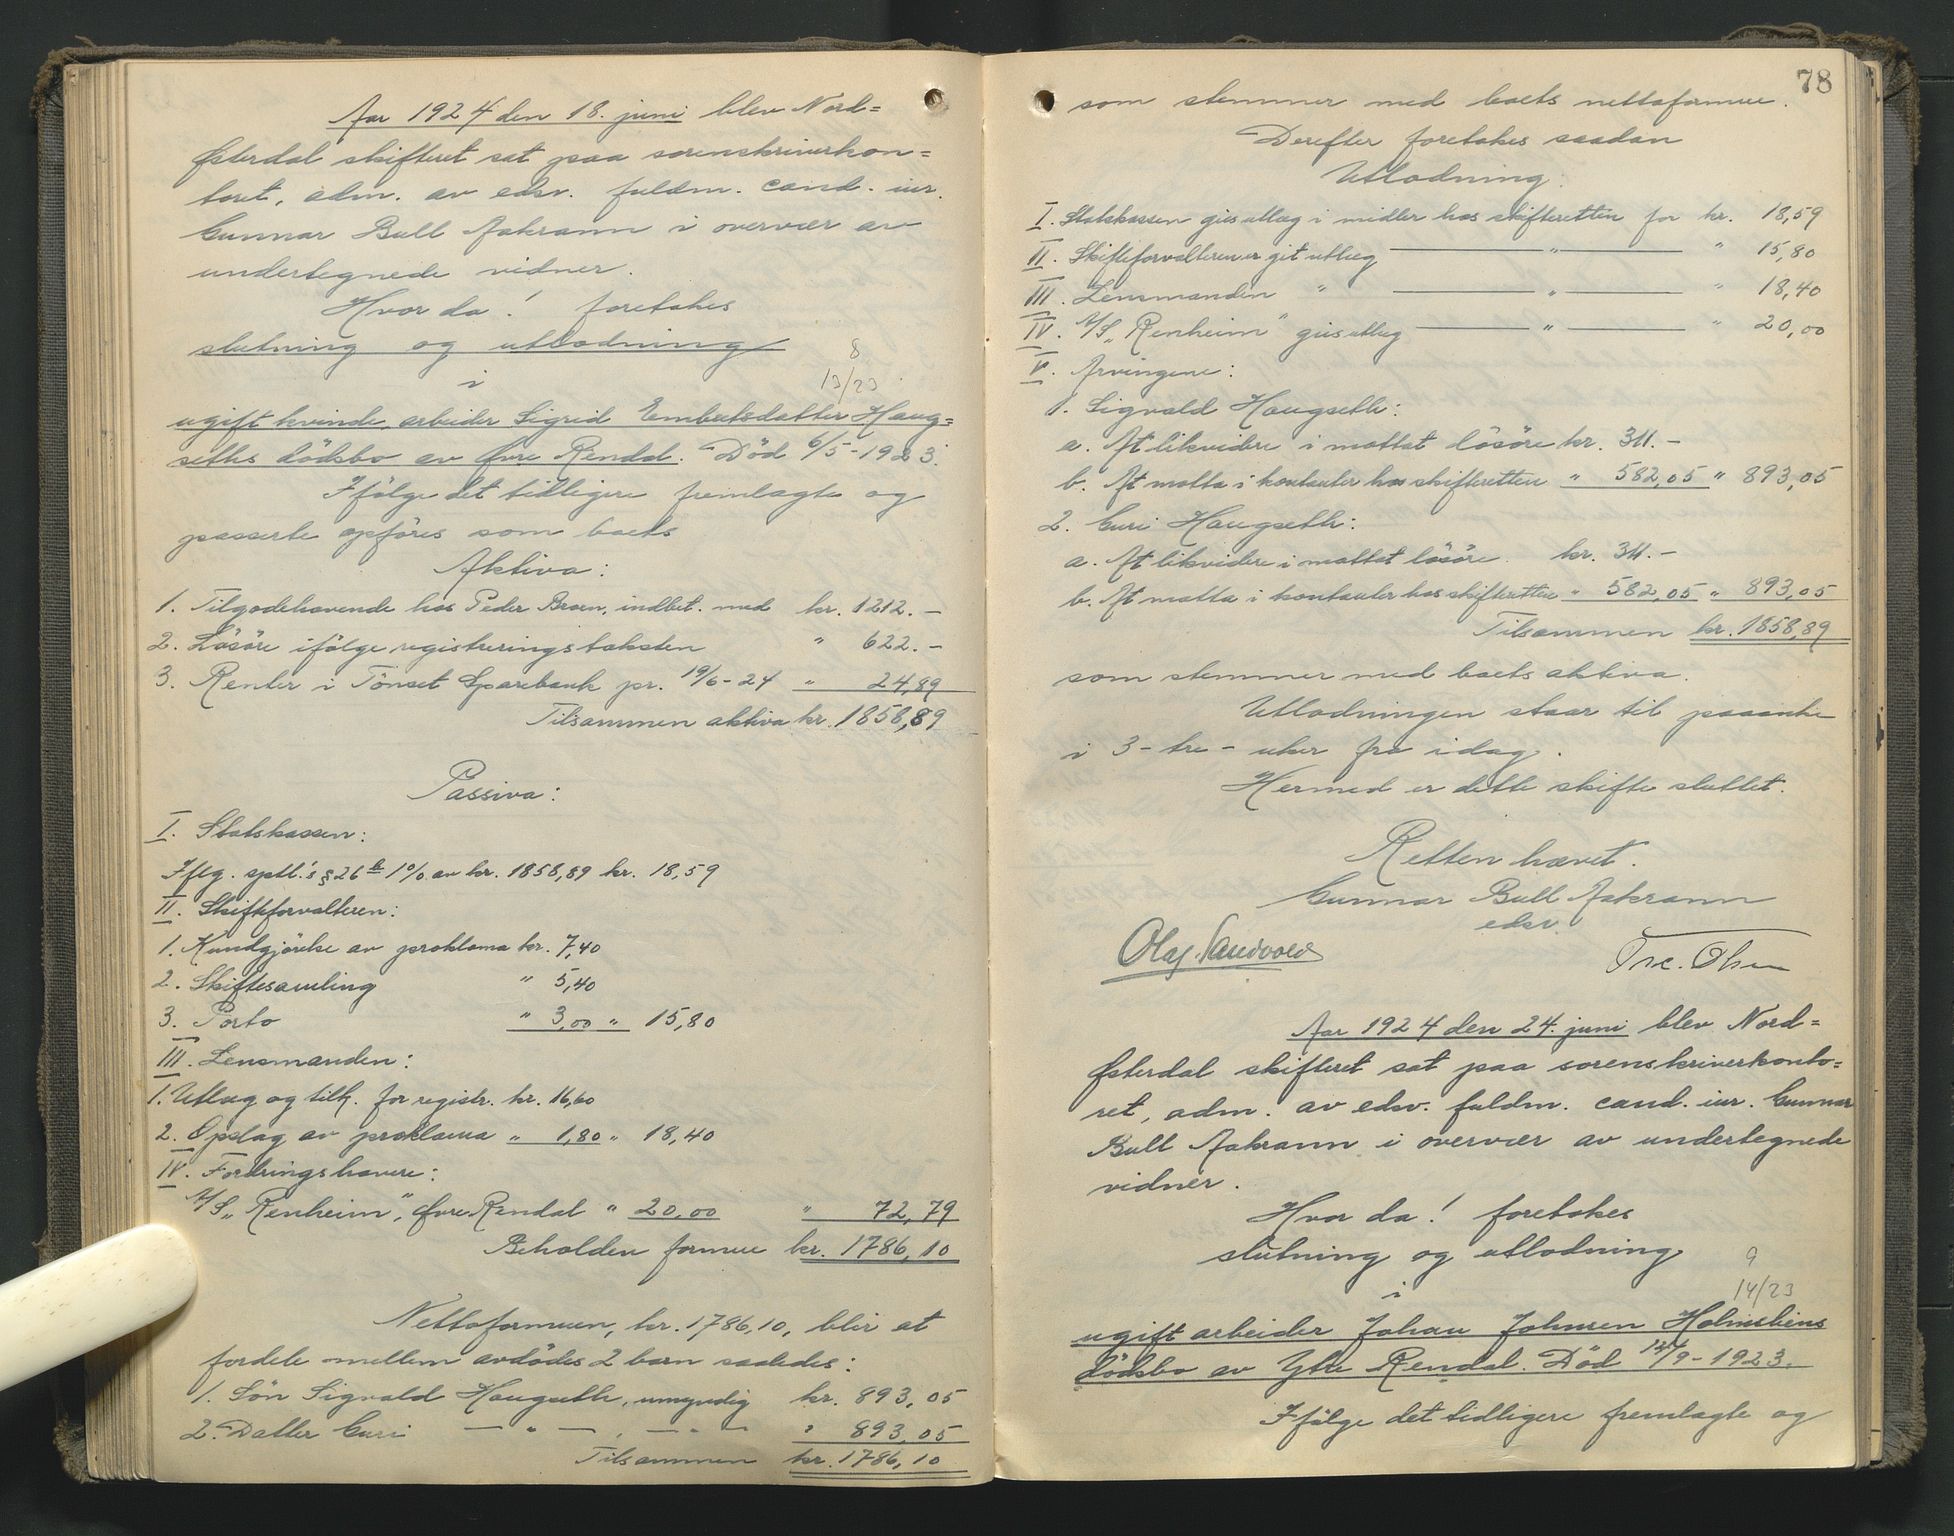 Aar 1924 den 18. juni blev Nord=
Østerdal skifteret sat paa sorenskriverkon=
toret, adm. av edsv. fuldm. cand. iur.
Gunnar Bull Aakrann i overvær av
undertegnede vidner.
Hvor da! foretokes
slutning og utlodning
8
i 13/23
ugift kvinde, arbeider Sigrid Embretsdatter Haug=
seths dödsbo av Øvre Rendal. Död 6/5-1923.
Ifölge det tidligere fremlagte og
passerte opföres som boets
Aktiva:
1. Tilgodehavende hos Peder Broen, indbet. med kr. 1212.-
2. Lösöre ifölge registreringstaksten " 622.-
3. Renter i Tönset Sparebank pr. 19/6-24 " 24,89
Tilsammen aktiva kr. 1858,89
Passiva:
I. Statskassen:
Iflg. sptl.'s § 26 b 1% av kr. 1858,89 kr. 18,59
II. Skifteforvalteren:
1. Kundgjörelse av proklama kr. 7,40
2. Skiftesamling " 5,40
3. Porto " 3,00 " 15,80
III. Lensmanden:
1. Utlæg og tilh. for registr. kr. 16,60
2. Opslag av proklama " 1,80 " 18,40
IV. Fordringshavere:
A/S „Renheim", Øvre Rendal " 20,00 " 72,79
Beholden formue kr. 1786,10
Nettoformuen, kr. 1786,10, blir at
fordele mellem avdödes 2 barn saaledes:
1. Sön Sigvald Haugseth, umyndig kr. 893,05
2. Datter Guri — " — , — " — " 893,05
Tilsammen kr. 1786,10
78
som stemmer med boets nettoformue.
Derefter foretokes saadan
Utlodning:
I. Statskassen gis utlæg i midler hos skifteretten for kr. 18,59
II. Skifteforvalteren er git utlæg — " — " 15,80
III. Lensmanden " — " — " 18,40
IV. A/S „Renheim" gis utlæg — " — " 20,00
V. Arvingene:
1. Sigvald Haugseth:
a. At likvidere i mottat lösöre kr. 311.-
b. At motta i kontanter hos skifteretten " 582,05 " 893,05
2. Guri Haugseth:
a. At likvidere i mottat lösöre kr. 311.-
b. At motta i kontanter hos skifteretten " 582,05 " 893,05
Tilsammen kr. 1858,89
som stemmer med boets aktiva.
Utlodningen staar til paaanke
i 3-tre- uker fra idag.
Hermed er dette skifte sluttet.
Retten hævet.
Gunnar Bull Aakrann
edsv.
Olaf Sandvold
Tre. Olsen
Aar 1924 den 24. juni blev Nord=
Østerdal skifteret sat paa sorenskriverkonto=
ret, adm. av edsv. fuldm. cand. iur. Gunnar
Bull Aakrann i overvær av undertegnede
vidner.
Hvor da! foretokes
slutning og utlodning
9
i 14/23
ugift arbeider Johan Johnsen Holmstiens
dödsbo av Ytre Rendal. Död 12/9-1923.
Ifölge det tidligere fremlagte og